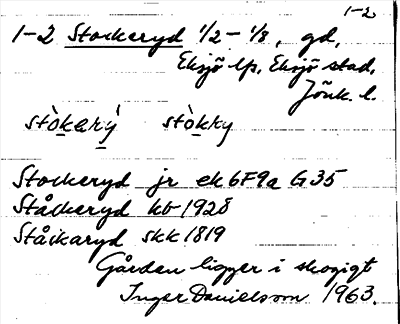 1-2
1-2 Stockeryd 1/2 - 1/8, gd,
Eksjö lfs, Eksjö stad,
Jönk. l.
stòkarỳ stòkky
Stockeryd jr ek 6F9a G35
Ståckeryd kb 1928
Ståckaryd skk 1819
Gården ligger i skogigt
Inger Danielsson 1963.